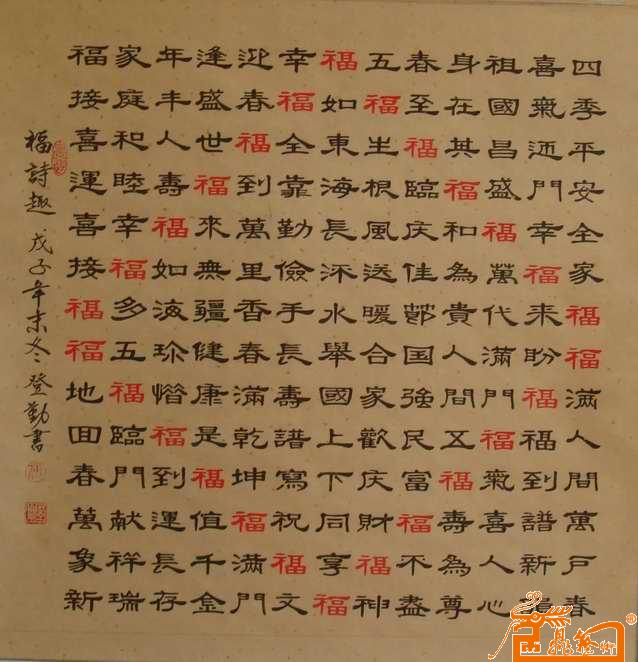 四季平安全家福福滿人間萬户春
喜氣迊門幸福来盼福福到譜新
祖國昌盛福萬代滿門福氣喜人心
身在其福和為貴人間五福壽為尊
春至福臨庆佳節国強民富福不盡
五福生根風送暖合家歡庆財福神
福如東海長流水舉國上下同享福
幸福全靠勤儉手長壽譜寫祝福文
迎春福到萬里香春滿乾坤福滿門
逢盛世福來無疆健康是福值千金
年丰人壽福如海珍惜福到運長存
家庭和睦幸福多五福臨門献祥瑞
福接喜運喜接福福地回春萬象新
福詩趣 戊子年末冬登勤書